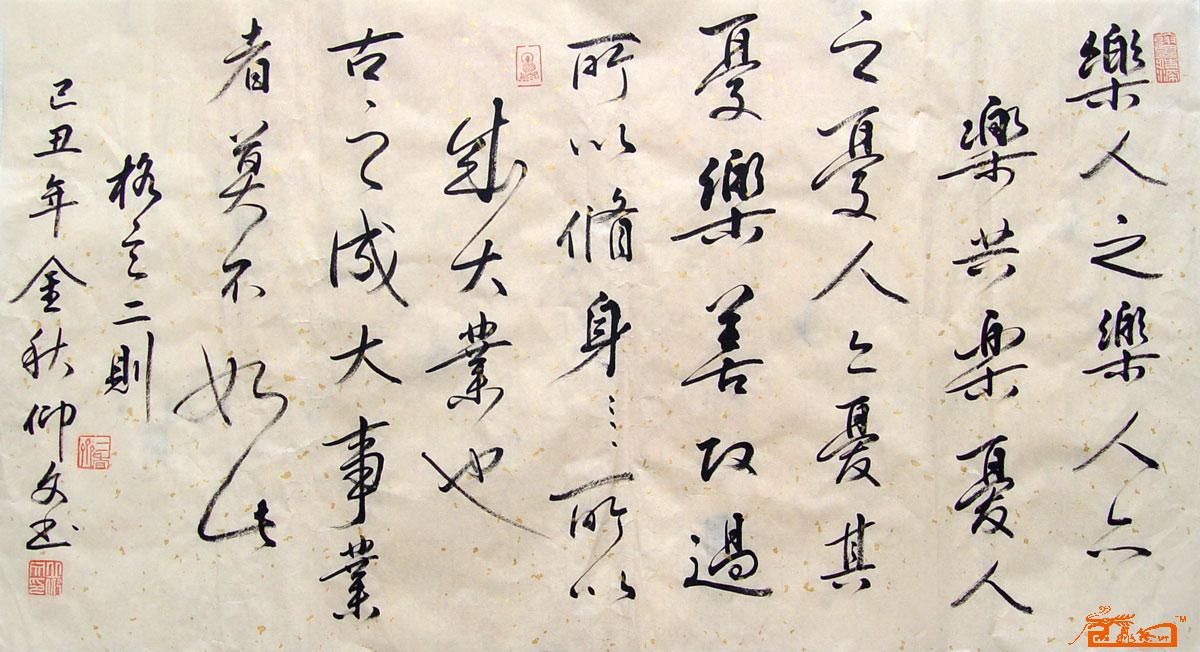 樂人之樂人亦
樂共樂憂人
之憂人亦憂其
憂樂善改過
所以脩身……所以
成大業也
古之成大事業
者莫不如此
格言二則
己丑年金秋仰文书